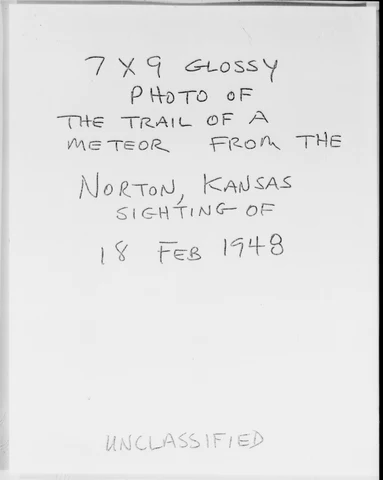 7 X 9 GLOSSY
PHOTO OF
THE TRAIL OF A
METEOR FROM THE
NORTON, KANSAS
SIGHTING OF
18 FEB 1948
UNCLASSIFIED